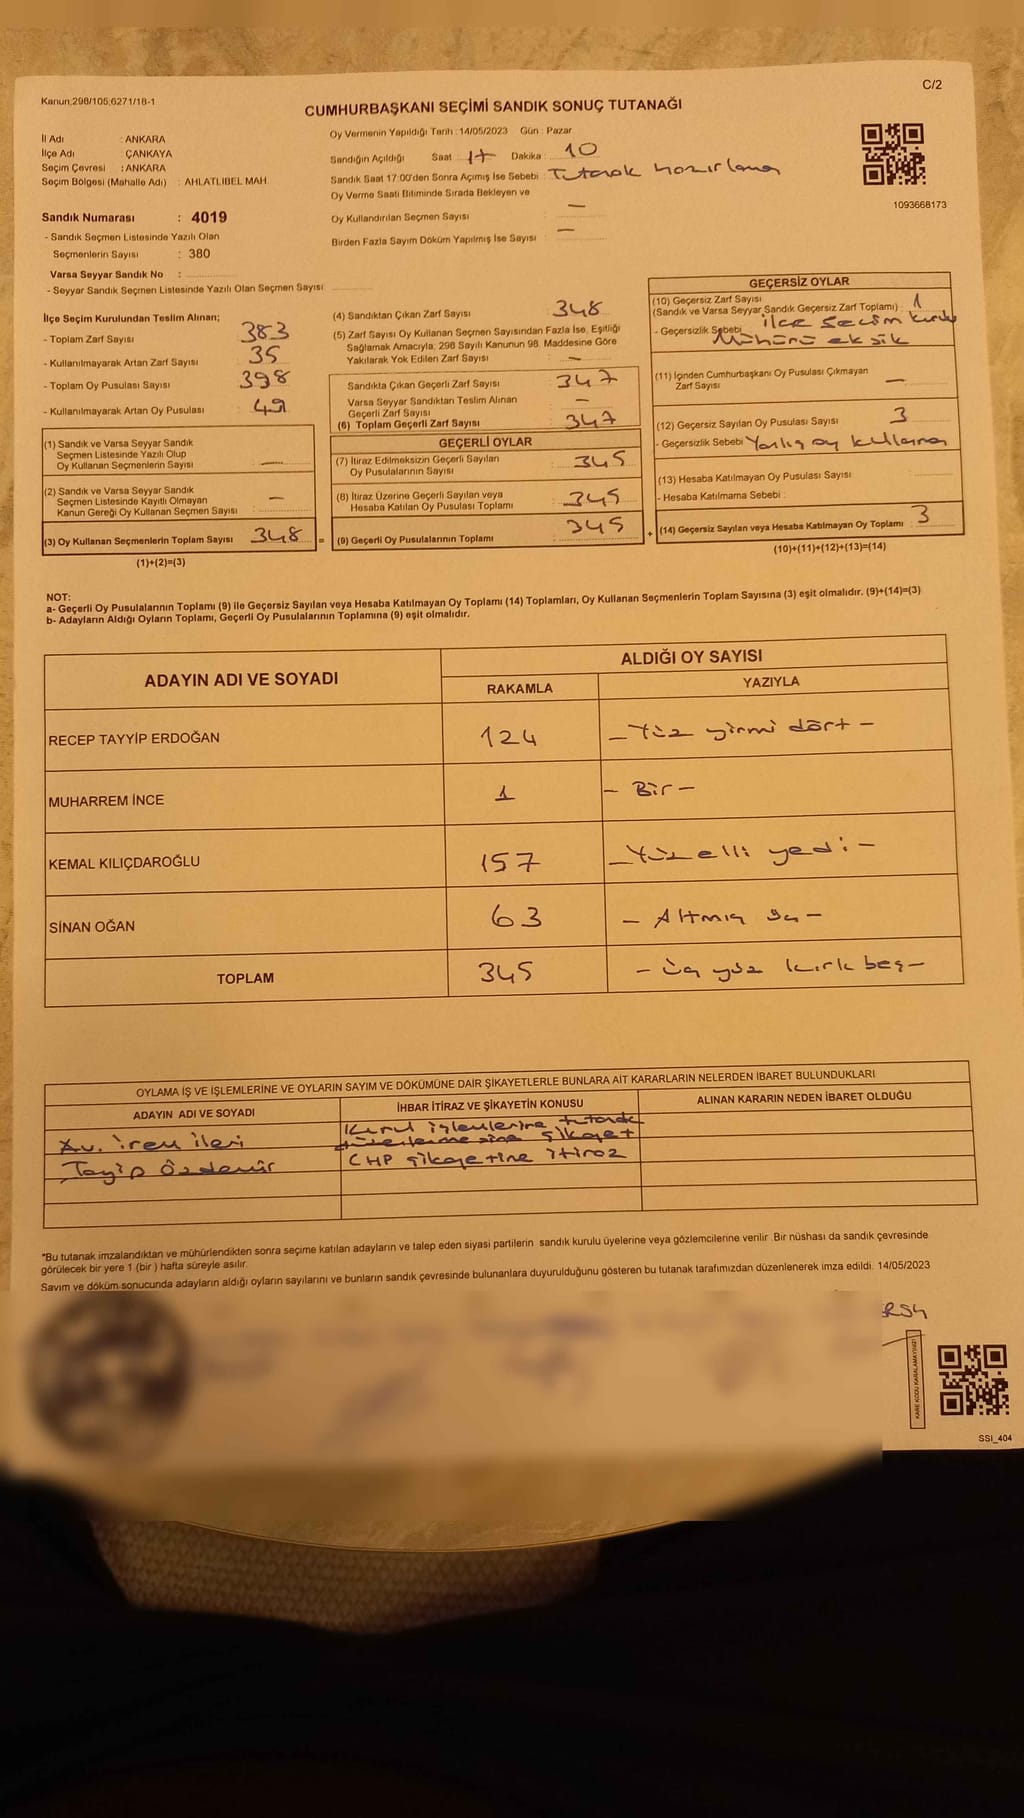 C/2
Kanun:298/105,6271/18-1
CUMHURBAŞKANI SEÇİMİ SANDIK SONUÇ TUTANAĞI
İl Adı : ANKARA
İlçe Adı : ÇANKAYA
Seçim Çevresi : ANKARA
Seçim Bölgesi (Mahalle Adı) : AHLATLIBEL MAH.
Oy Vermenin Yapıldığı Tarih : 14/05/2023 Gün : Pazar
Sandığın Açıldığı Saat 17 Dakika : 10
Sandık Saat 17:00'den Sonra Açımış İse Sebebi : Tutanak hazırlama
Oy Verme Saati Bitiminde Sırada Bekleyen ve
Oy Kullandırılan Seçmen Sayısı : —
Birden Fazla Sayım Döküm Yapılmış İse Sayısı : —
1093668173
Sandık Numarası : 4019
- Sandık Seçmen Listesinde Yazılı Olan
Seçmenlerin Sayısı : 380
Varsa Seyyar Sandık No :
- Seyyar Sandık Seçmen Listesinde Yazılı Olan Seçmen Sayısı:
İlçe Seçim Kurulundan Teslim Alınan;
- Toplam Zarf Sayısı : 383
- Kullanılmayarak Artan Zarf Sayısı : 35
- Toplam Oy Pusulası Sayısı : 398
- Kullanılmayarak Artan Oy Pusulası : 49
(1) Sandık ve Varsa Seyyar Sandık
Seçmen Listesinde Yazılı Olup
Oy Kullanan Seçmenlerin Sayısı : —
(2) Sandık ve Varsa Seyyar Sandık
Seçmen Listesinde Kayıtlı Olmayan
Kanun Gereği Oy Kullanan Seçmen Sayısı : —
(3) Oy Kullanan Seçmenlerin Toplam Sayısı : 348 =
(1)+(2)=(3)
(4) Sandıktan Çıkan Zarf Sayısı : 348
(5) Zarf Sayısı Oy Kullanan Seçmen Sayısından Fazla İse, Eşitliği
Sağlamak Amacıyla; 298 Sayılı Kanunun 98. Maddesine Göre
Yakılarak Yok Edilen Zarf Sayısı : —
Sandıkta Çıkan Geçerli Zarf Sayısı : 347
Varsa Seyyar Sandıktan Teslim Alınan
Geçerli Zarf Sayısı : —
(6) Toplam Geçerli Zarf Sayısı : 347
GEÇERLİ OYLAR
(7) İtiraz Edilmeksizin Geçerli Sayılan
Oy Pusulalarının Sayısı : 345
(8) İtiraz Üzerine Geçerli Sayılan veya
Hesaba Katılan Oy Pusulası Toplamı : 345
(9) Geçerli Oy Pusulalarının Toplamı : 345 +
GEÇERSİZ OYLAR
(10) Geçersiz Zarf Sayısı
(Sandık ve Varsa Seyyar Sandık Geçersiz Zarf Toplamı) : 1
- Geçersizlik Sebebi : ilçe Seçim kurulu
Mühürü eksik
(11) İçinden Cumhurbaşkanı Oy Pusulası Çıkmayan
Zarf Sayısı : —
(12) Geçersiz Sayılan Oy Pusulası Sayısı : 3
- Geçersizlik Sebebi : Yanlış oy kullanma
(13) Hesaba Katılmayan Oy Pusulası Sayısı :
- Hesaba Katılmama Sebebi :
(14) Geçersiz Sayılan veya Hesaba Katılmayan Oy Toplamı : 3
(10)+(11)+(12)+(13)=(14)
NOT:
a- Geçerli Oy Pusulalarının Toplamı (9) ile Geçersiz Sayılan veya Hesaba Katılmayan Oy Toplamı (14) Toplamları, Oy Kullanan Seçmenlerin Toplam Sayısına (3) eşit olmalıdır. (9)+(14)=(3)
b- Adayların Aldığı Oyların Toplamı, Geçerli Oy Pusulalarının Toplamına (9) eşit olmalıdır.
ADAYIN ADI VE SOYADI
ALDIĞI OY SAYISI
RAKAMLA YAZIYLA
RECEP TAYYİP ERDOĞAN 124 – Yüz yirmi dört –
MUHARREM İNCE 1 – Bir –
KEMAL KILIÇDAROĞLU 157 – Yüz elli yedi –
SİNAN OĞAN 63 – Altmış üç –
TOPLAM 345 – Üç yüz kırk beş –
OYLAMA İŞ VE İŞLEMLERİNE VE OYLARIN SAYIM VE DÖKÜMÜNE DAİR ŞİKAYETLERLE BUNLARA AİT KARARLARIN NELERDEN İBARET BULUNDUKLARI
ADAYIN ADI VE SOYADI İHBAR İTİRAZ VE ŞİKAYETİN KONUSU ALINAN KARARIN NEDEN İBARET OLDUĞU
Av. İrem ileri Kurul işlemlerine tutanak
düzenlenmesine şikayet
Tayip Özdemir CHP şikayetine itiraz
*Bu tutanak imzalandıktan ve mühürlendikten sonra seçime katılan adayların ve talep eden siyasi partilerin sandık kurulu üyelerine veya gözlemcilerine verilir .Bir nüshası da sandık çevresinde
görülecek bir yere 1 (bir ) hafta süreyle asılır.
Sayım ve döküm sonucunda adayların aldığı oyların sayılarını ve bunların sandık çevresinde bulunanlara duyurulduğunu gösteren bu tutanak tarafımızdan düzenlenerek imza edildi. 14/05/2023
KARE KODU KARALAMAYINIZ!
SSI_404